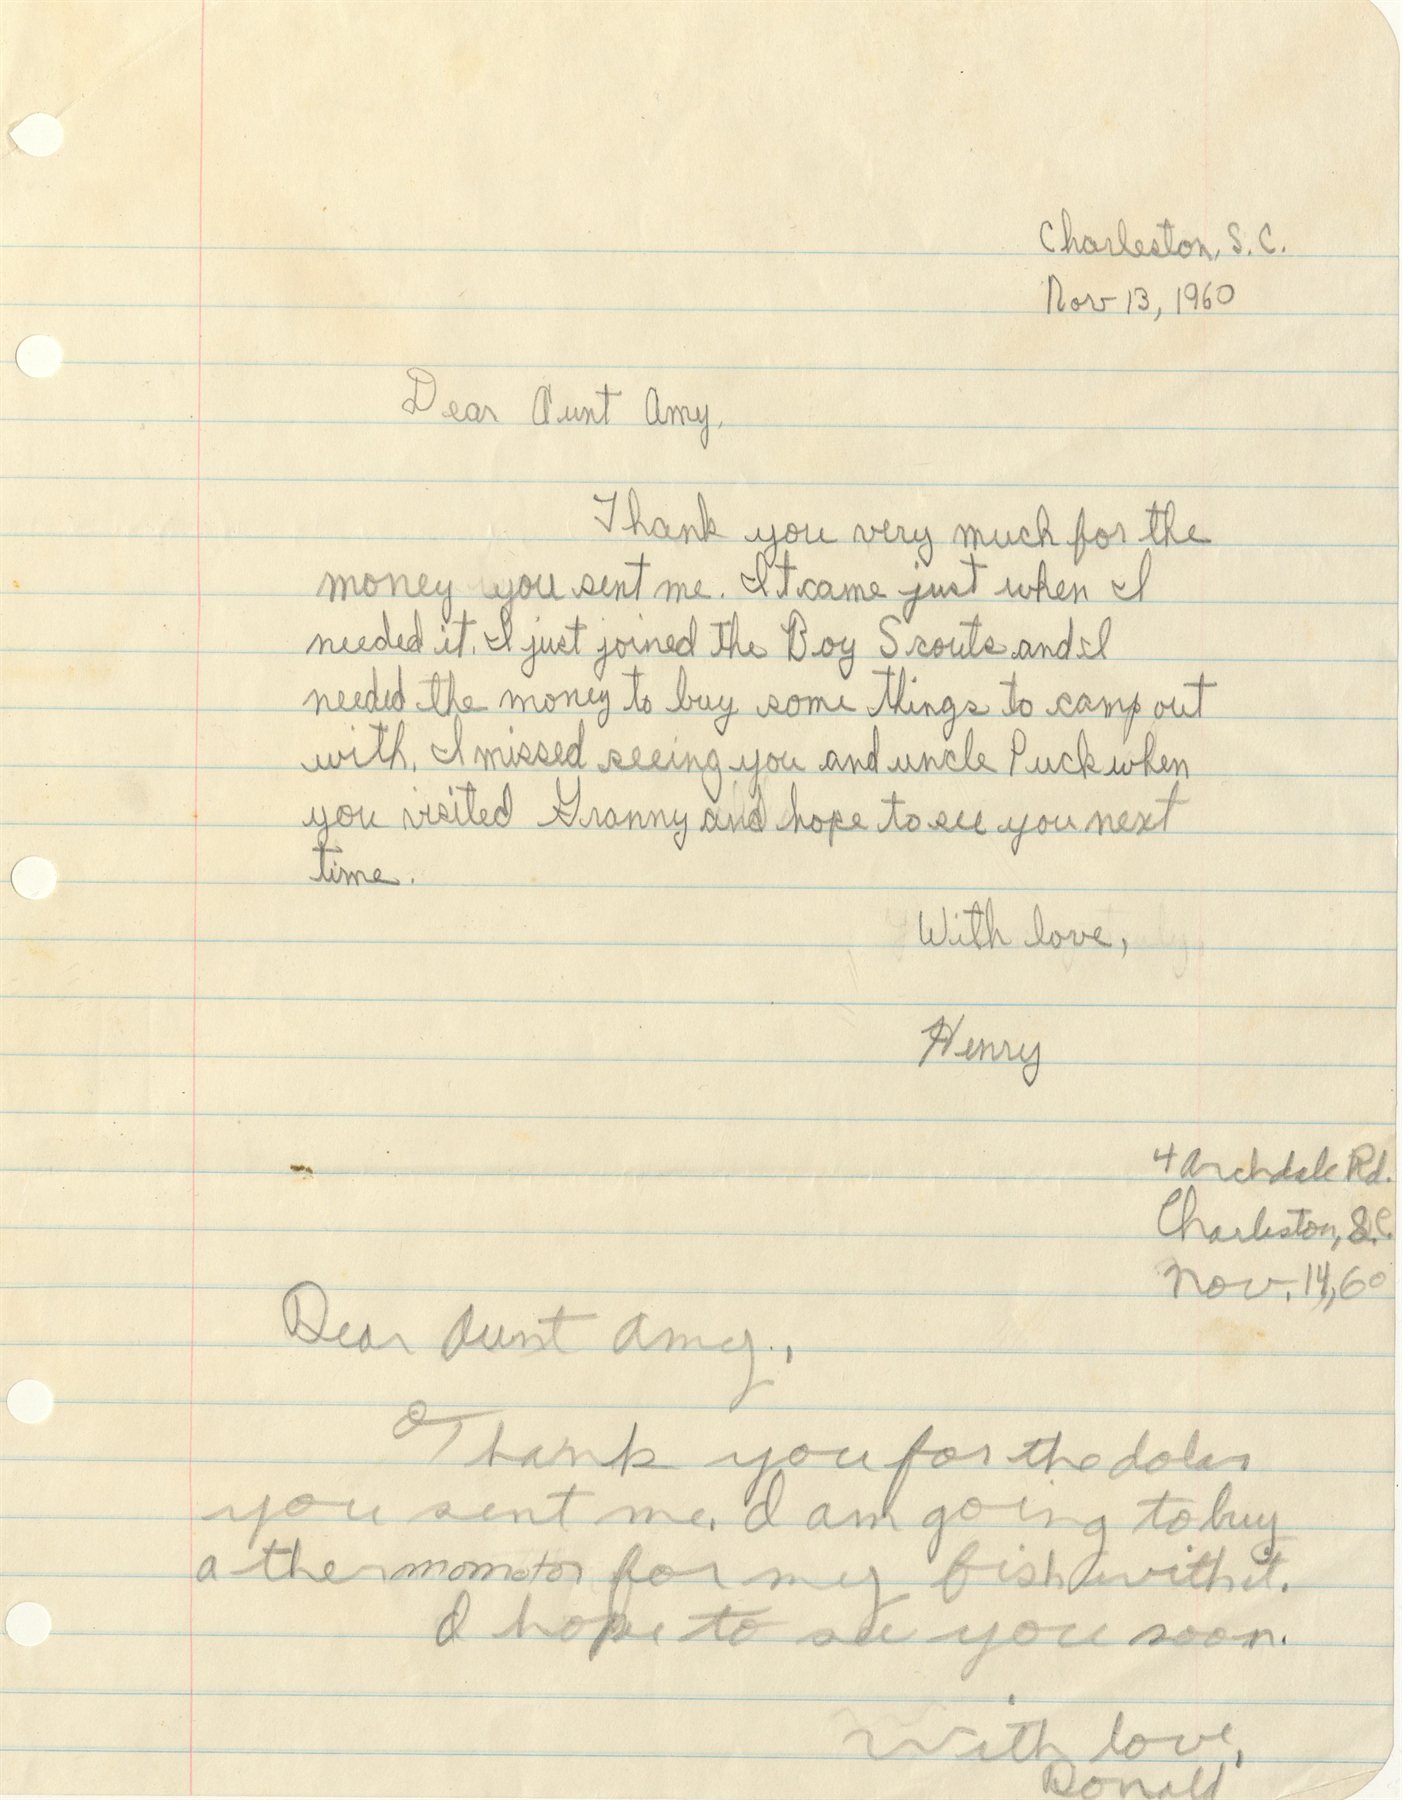 Charleston, S.C.
Nov 13, 1960
Dear Aunt Amy,
Thank you very much for the
money you sent me. It came just when I
needed it. I just joined the Boy Scouts and I
needed the money to buy some things to camp out
with. I missed seeing you and uncle Puck when
you visited Granny and hope to see you next
time.
With love,
Henry
4 Archdale Rd.
Charleston, S.C.
Nov. 14, 60
Dear Aunt Amy,
Thank you for the dolar
you sent me. I am going to buy
a thermomotor for my fish with it.
I hope to see you soon.
With love,
Donald